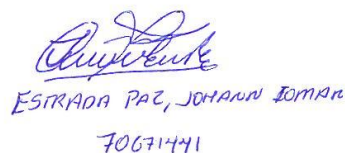 ESTRADA PAZ, JOHANN IOMAR
70671441